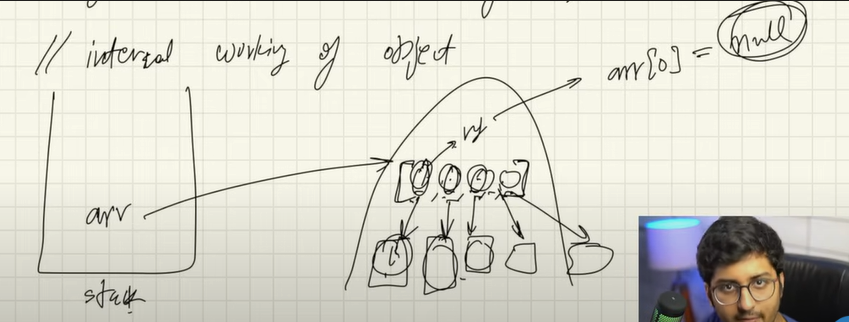 // internal working of object
arr[0] = null
arr
stack